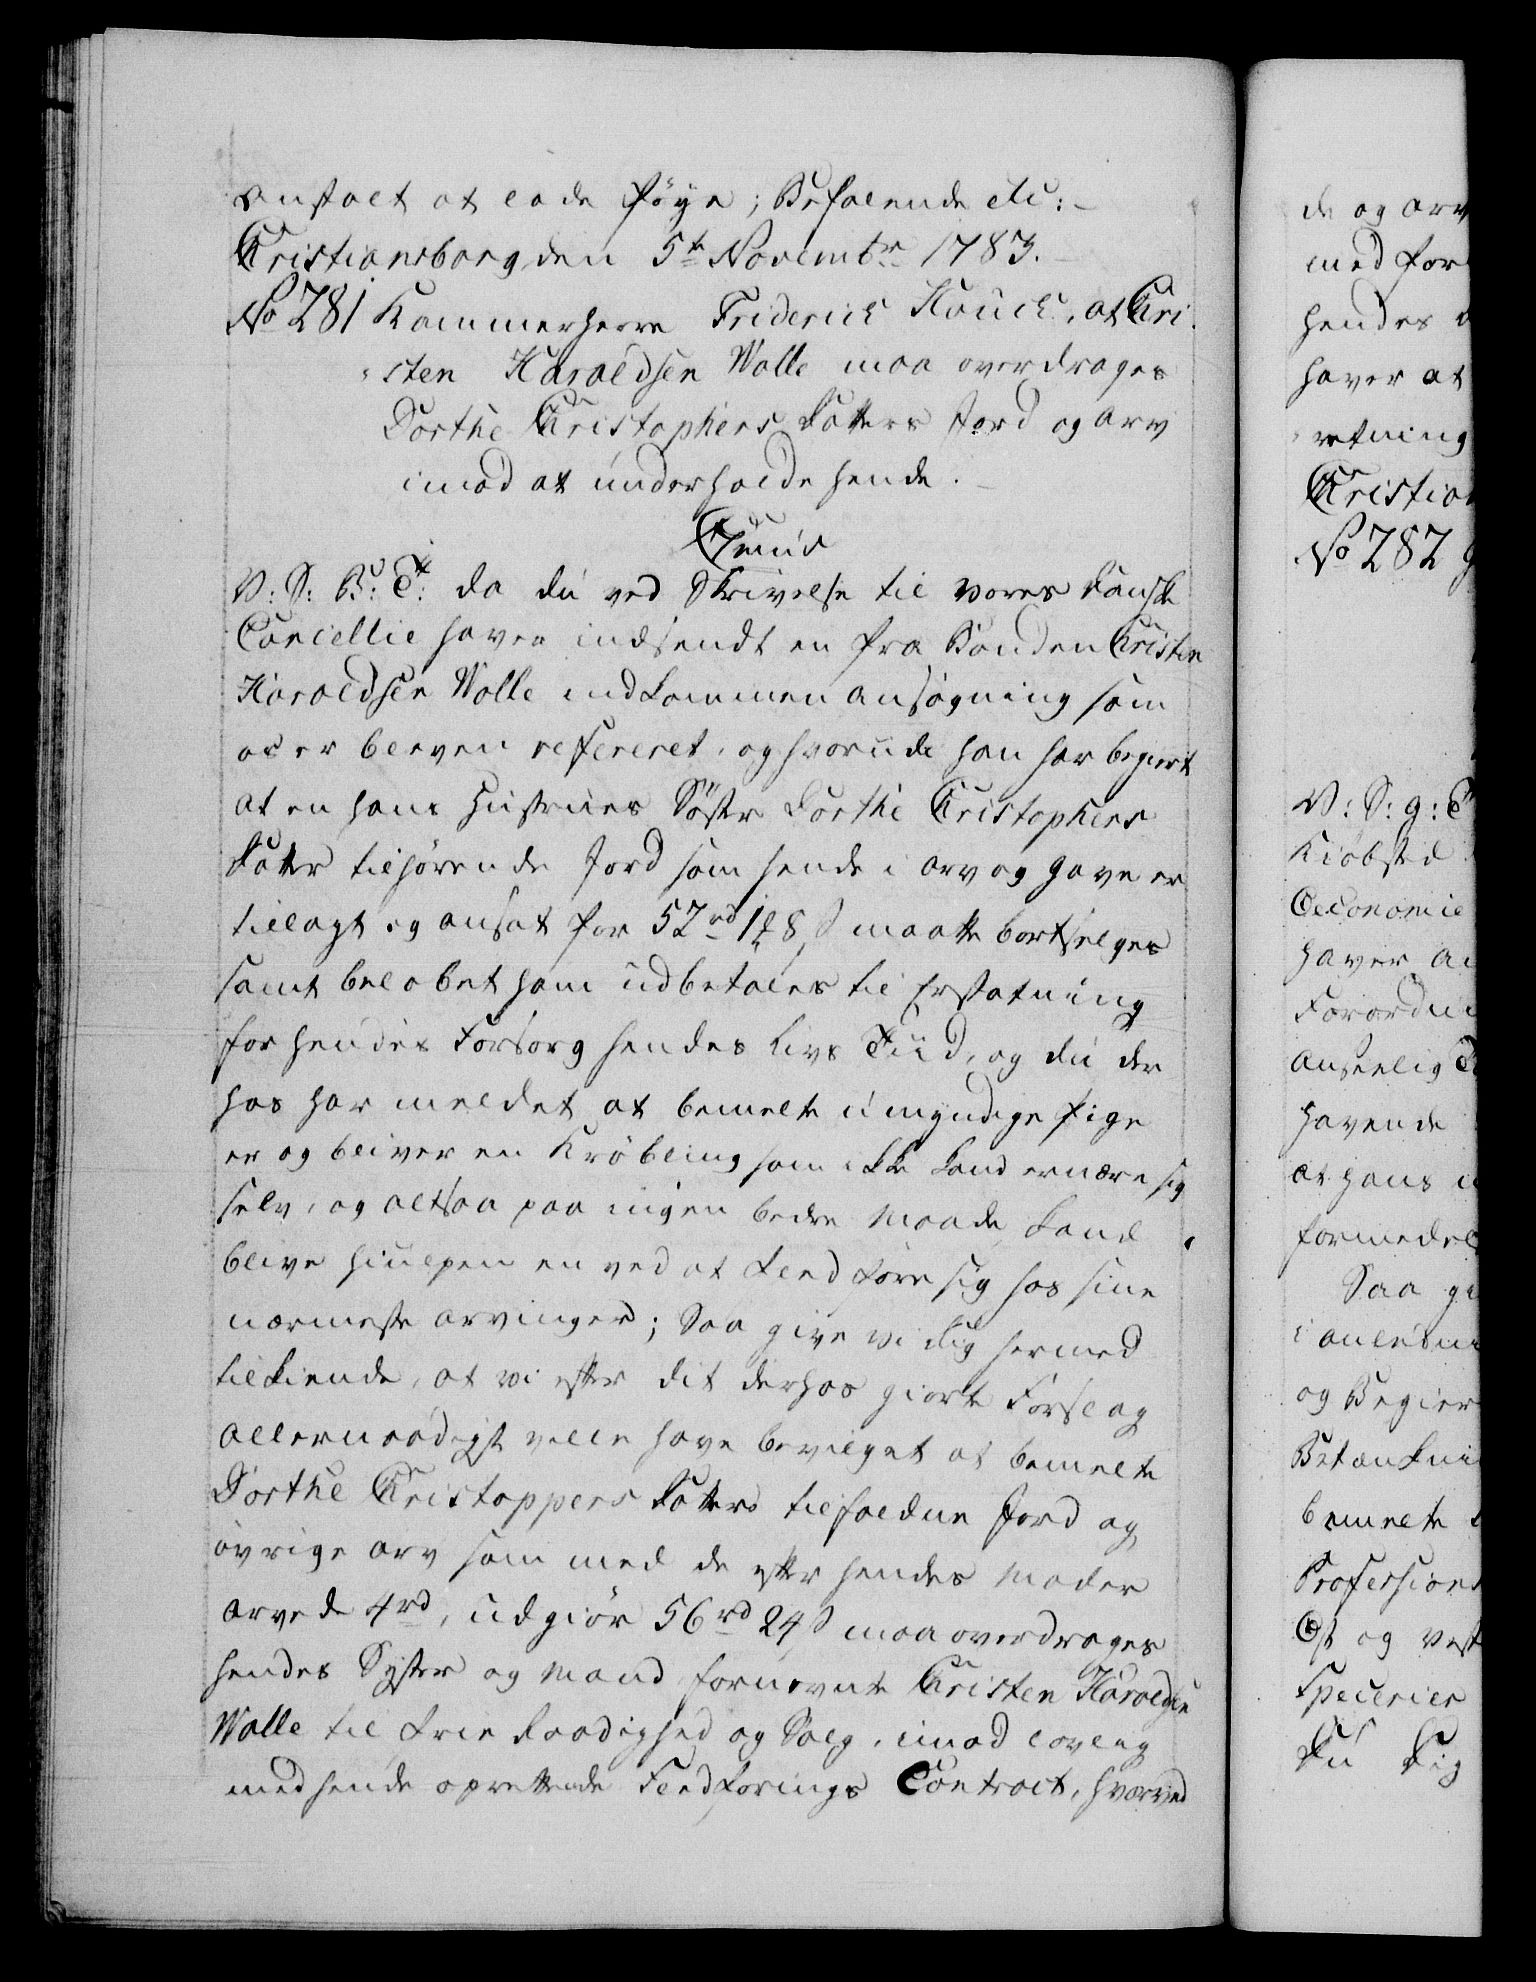 Anstalt at lade föye; Befalende etc:
Christiansborg den 5te Novembr 1783.
No 281 Kammerherre Friderich Hauch, at Chri-
sten Haraldsen Walle maa overdrages
Dorthe Christophers Datters Jord og Arv
imod at underholde hende.
C7mus
V: S: B: T: da du ved Skrivelse til vores danske
Cancellie haver indsendt en fra Bonden Christen
Haraldsen Walle indkommen ansøgning som
os er bleven refereret, og hvorudi han har begiert
at en hans Hustrues Söster Dorthe Christophers
Datter tilhørende Jord som hende i arv og gave er
tillagt og ansat for 52 rd 1 8 s maatte bortselges
samt beløbet ham udbetales til Erstatning
for hendes Forsorg hendes Livs Tiid, og du der
hos har meldet at bemelte umyndige Pige
er og bliver en Krøbling som ikke kand ernære sig
selv, og altsaa paa ingen bedre Maade kand
blive hiulpen en ved at Fledføre sig hos sine
nærmeste arvinger; Saa give vi dig hermed
tilkiende, at vi efter dit derhos giorte Forslag
allernaadigst ville have bevilget at bemelte
Dorthe Christoppers Datters tilfaldne Jord og
øvrige arv som med de efter hendes Moder
arvede 4 rd, udgiør 56 rd 24 s maa overdrages
hendes Syster og Mand fornevnte Christen Haraldsen
Walle til Frie Raadighed og Salg, imod lovlig
med hende oprettende Fledførings Contract, hvorved
de og arv
med for
hendes
haver at
retning
Christian
No 282
V: S: g: T
Kiöbsted
Oeconomie
haver
Forordn
anseelig
havende
at hans
formedel
Saa gi
i anledni
og Begier
Betænkni
bemelte
Professions
Ost og vest
Specerier
du dig